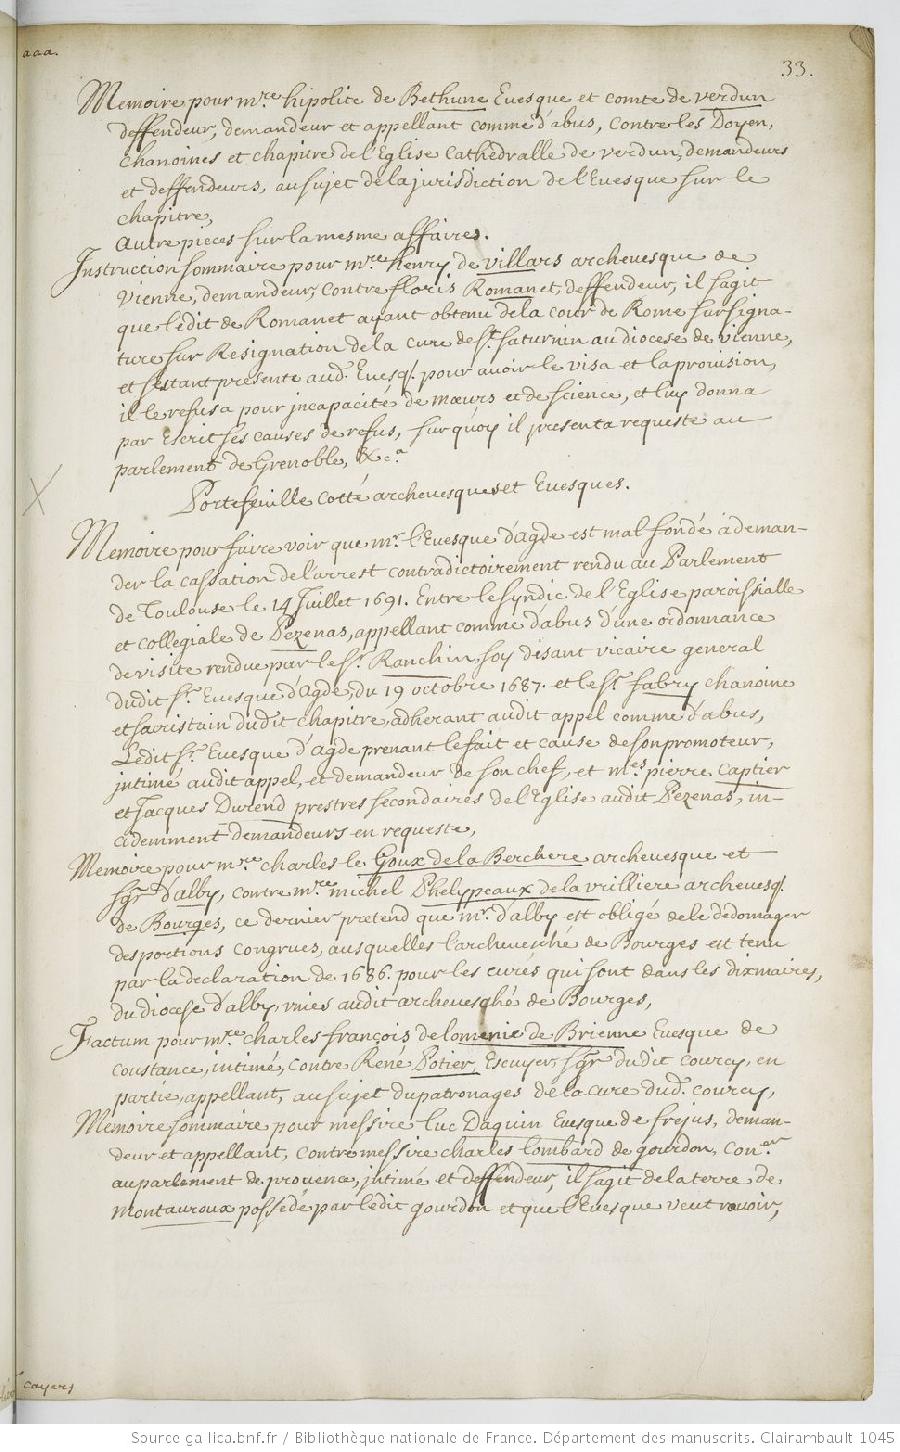 aaa.
33.
Memoire pour mre hipolite de Bethune Euesque et comte de verdun
deffendeur, demandeur et appellant comme d'abus, contre les Doyen,
chanoines et chapitre de l'Eglise Cathedralle de verdun, demandeurs
et deffendeurs, au sujet de la jurisdiction de l'Euesque sur le
chapitre,
Autre pieces sur la mesme affaires.
Instruction sommaire pour mre henry de villars archeuesque de
Vienne, demandeur, contre floris Romanet, deffendeur, il sagit
que ledit de Romanet ayant obtenu de la cour de Rome sur signa-
ture sur Resignation de la cure de St. saturnin au diocese de vienne,
et s'estant presente aud. Euesq. pour auoir le visa et la prouision,
il le refusa pour incapacité de mœurs et de science, et luy donna
par Escrit ses causes de refus, sur quoy il presenta requeste au
parlement de Grenoble, &c.a
Portefeuille cotté archeuesques et Euesques.
Memoire pour faire voir que mr. l'Euesque d'agde est mal fondé à deman-
der la cassation de l'arrest contradictoirement rendu au Parlement
de Toulouse le 14 Juillet 1691. Entre le syndic de l'Eglise paroissialle
et collegiale de Pezenas, appellant comme d'abus d'une ordonnance
de visite rendue par le sr. Ranchin, soy disant vicaire general
dudit sr. Euesque d'agde, du 19 octobre 1687. et le sr. fabry chanoine
et sacristain dudit chapitre, adherant audit appel comme d'abus,
Ledit sr. Euesque d'agde prenant le fait et cause de son promoteur,
intimé audit appel, et demandeur de son chef, et mes. pierre Captier
et Jacques Durend prestres secondaires de l'Eglise audit Pezenas, in-
cidemment demandeurs en requeste,
Memoire pour mre charles le Goux de la Berchere archeuesque et
sgr d'alby, contre mre michel Phelypeaux de la vrilliere archeuesq.
de Bourges, ce dernier pretend que mr. d'alby est obligé de le dédomager
des portions congrues, ausquelles l'archeuesché de Bourges est tenu
par la declaration de 1686. pour les curés qui sont dans les dixmaires,
du diocese d'alby, vnies audit archeuesché de Bourges,
Factum pour mre charles françois de lomenie de Brienne Euesque de
Coustance, intimé, contre René Potier, Escuyer, sgr dudit courcy, en
partie, appellant, au sujet du patronages de la cure dud. courcy,
Memoire sommaire pour messire luc Daquin Euesque de frejus, deman-
deur et appellant, contre messire charles lombard de gourdon, con.er
au parlement de prouence, intimé et deffendeur, il sagit de la terre de
montauroux possedé par ledit gourdon et que l'Euesque veut rauoir,
cayers
Source gallica.bnf.fr / Bibliothèque nationale de France. Département des manuscrits. Clairambault 1045